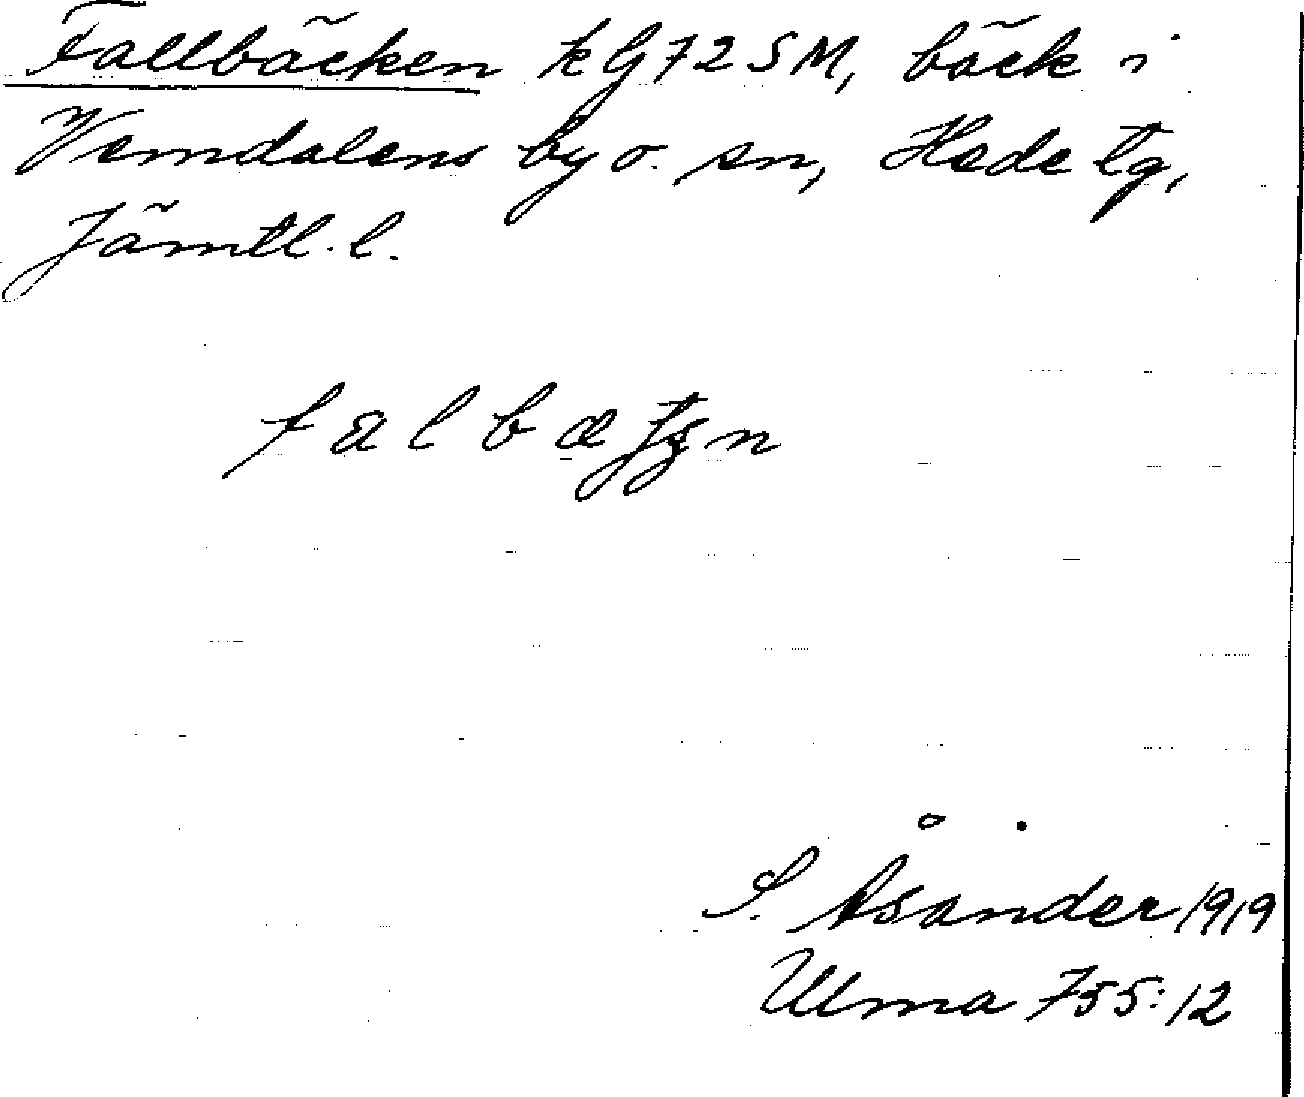 Fallbäcken kG72SM, bäck i
Vemdalens by o. sn, Hede tg,
Jämtl. l.
S. Åsander 1919
Ulma 755:12